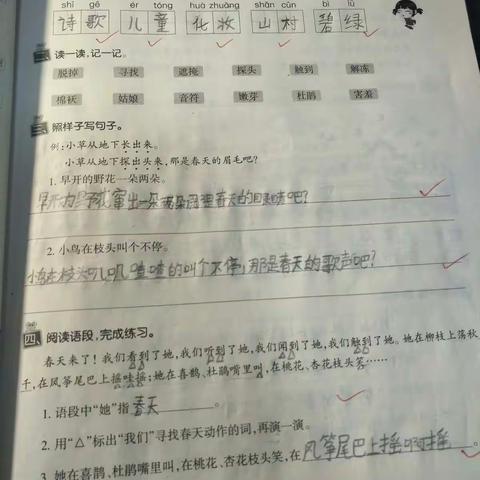 shī gē ér tóng huà zhuāng shān cūn bì lǜ
诗歌 儿童 化妆 山村 碧绿
二、读一读,记一记。
脱掉 寻找 遮掩 探头 触到 解冻
棉袄 姑娘 音符 嫩芽 杜鹃 害羞
三、照样子写句子。
例:小草从地下长出来。
小草从地下探出头来,那是春天的眉毛吧?
1. 早开的野花一朵两朵。
早开的野花窜出一朵两朵,那是春天的眼睛吧?
2. 小鸟在枝头叫个不停。
小鸟在枝头叽叽喳喳的叫个不停,那是春天的歌声吧?
四、阅读语段,完成练习。
春天来了!我们看到了她,我们听到了她,我们闻到了她,我们触到了她。她在柳枝上荡秋
千,在风筝尾巴上摇哇摇;她在喜鹊、杜鹃嘴里叫,在桃花、杏花枝头笑……
1. 语段中“她”指春天。
2. 用“△”标出“我们”寻找春天动作的词,再演一演。
3. 她在喜鹊、杜鹃嘴里叫,在桃花、杏花枝头笑,在风筝尾巴上摇啊摇。